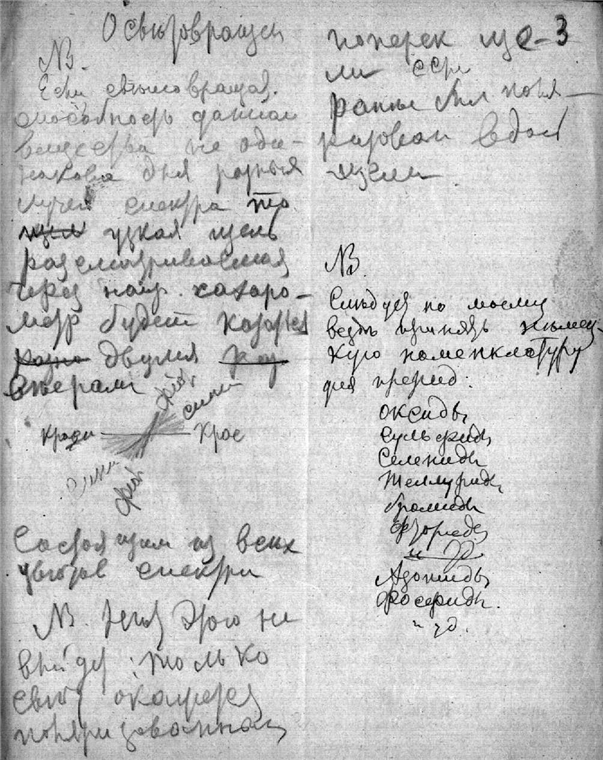 О свѣтовращен
NB.
Если свѣтовращат.
способность данная
вещества не оди-
накова для разных
лучей спектра то
узкая щель
разсматриваемая
через напр. сахаро-
метр будет казаться
разно двумя
веерами
фіол.
синій
красн
Крас
Синій
фіол
Состоящим из всех
цвѣтов спектра
NB. Если этого не
выйдет, только
свѣт окажется
поляризованным
поперек ще- 3
ли если
раньше был поля-
ризован вдоль
щели
NB.
Слѣдует по моему
везде принять нѣмец-
кую номенклатуру
для прерид.
оксиды
сульфиды
Селениды
Теллуриды
бромиды
Фториды
и др
Азотиды
Фосфриды.
и др.